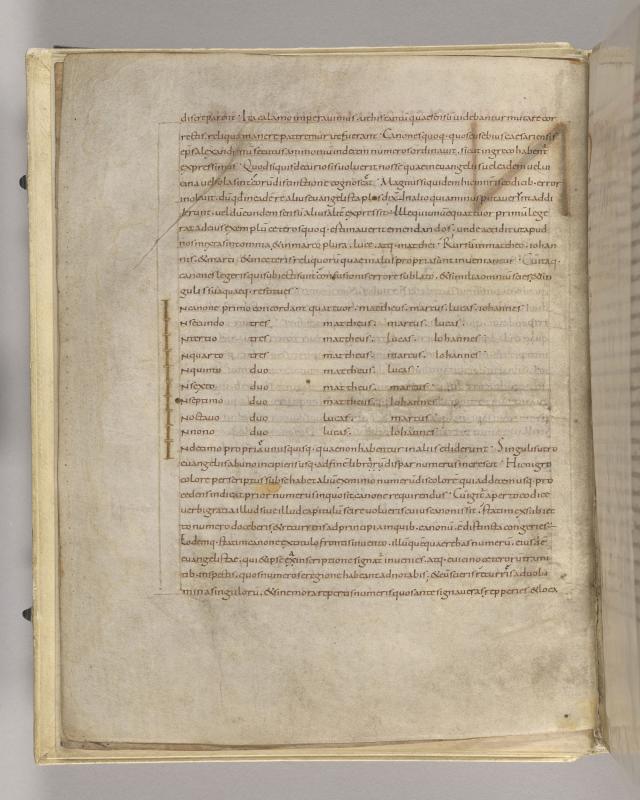 discreparent · Ita calamo imperavimus · ut his tantū quae sensū videbantur mutare cor
rectis, reliqua manere pateremur ut fuerant · Canones quoq· quos eusebius caesariensis
eps alexandrinū secutus ammoniū in decem numeros ordinavit, sicut in greco habent
expressimus · Quod siquis de curiosis voluerit nosse quae in evangeliis vel eadem vel vi
cina vel sola sint eorū distinctione cognoscat · Magnus siquidem hic in nr̄is codicib· error
inolevit, dū qd in eadē re alius evangelista plus dix̄ · In alio quia minus putaverint addi
derunt · vel dū eundem sensū alius aliter expressit · Ille qui unū e quattuor primū lege
rat ad eius exemplū ceteros quoq· estimaverit emendandos · unde accidit ut apud
nos mixta sint omnia, & in marco plura lucae, atq· matthei · Rursū in matheo, iohan
nis, & marci · & in ceteris reliquorū quae in aliis propria sunt inveniantur · Cū itaq·
canones legeris qui subiecti sunt confusionis errore sublato, & similia omniū scies, & sin
gulis sua quaeq· restitues ·
IN canone primo concordant quattuor · mattheus, marcus, lucas, iohannes ·
IN secundo tres mattheus, marcus, lucas ·
IN tertio tres mattheus, lucas, Iohannes ·
IN quarto tres mattheus, marcus, Iohannes ·
IN quinto duo mattheus, lucas ·
IN sexto duo mattheus, marcus ·
IN septimo duo mattheus, Iohannes ·
IN octavo duo lucas, marcus ·
IN nono duo lucas, Iohannes ·
IN decimo propria unusquisq· quae non habentur in aliis ediderunt · Singulis vero
evangeliis ab uno incipiens usq· ad finē librorū dispar numerus increscit · Hic nigro
colore perscriptus sub se habet aliū ex minio numerū discolorē qui ad decem usq· pro
cedens indicat prior numerus in quo sit canone requirendus · Cū igit̄ aperto codice
verbi gratia illud sive illud capitulū scire volueris cuius canonis sit, statim ex subiec
to numero doceberis, & recurrens ad principia in quib· canonū ē distincta congeries ·
Eodemq· statim canone ex titulo frontis invento, illū quē quaerebas numerū, eiusdē
evangelistae, qui & ipse ex inscriptione signat̄ invenies, atq· e vicino ceterorū trami
tib· inspectis, quos numeros e regione habeant adnotabis, & cū scieris recurres ad volu
mina singulorū, & sine mora repertis numeris quos ante signaveras repperies & loca